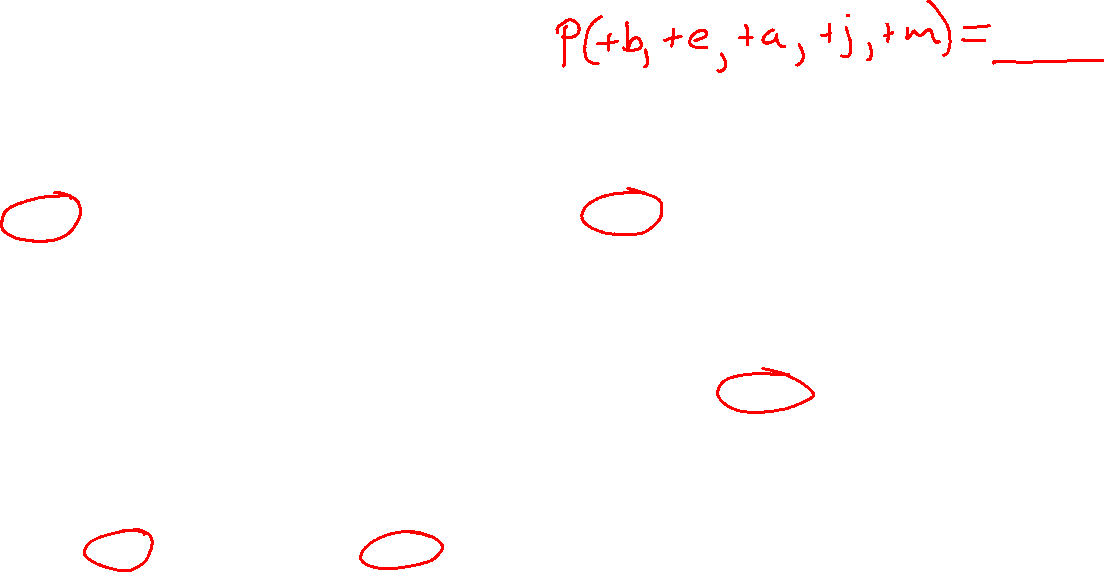 P(+b, +e, +a, +j, +m) = ____